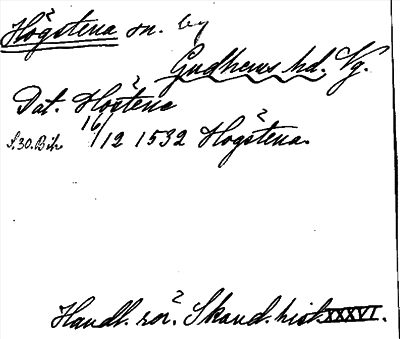 Högstena sn. by
Gudhems hd. Vg.
Dat. Hogstena
S. 30. Bih. 16/12 1532 Hogstena.
Handl. rör. Skand. hist. XXXVI.